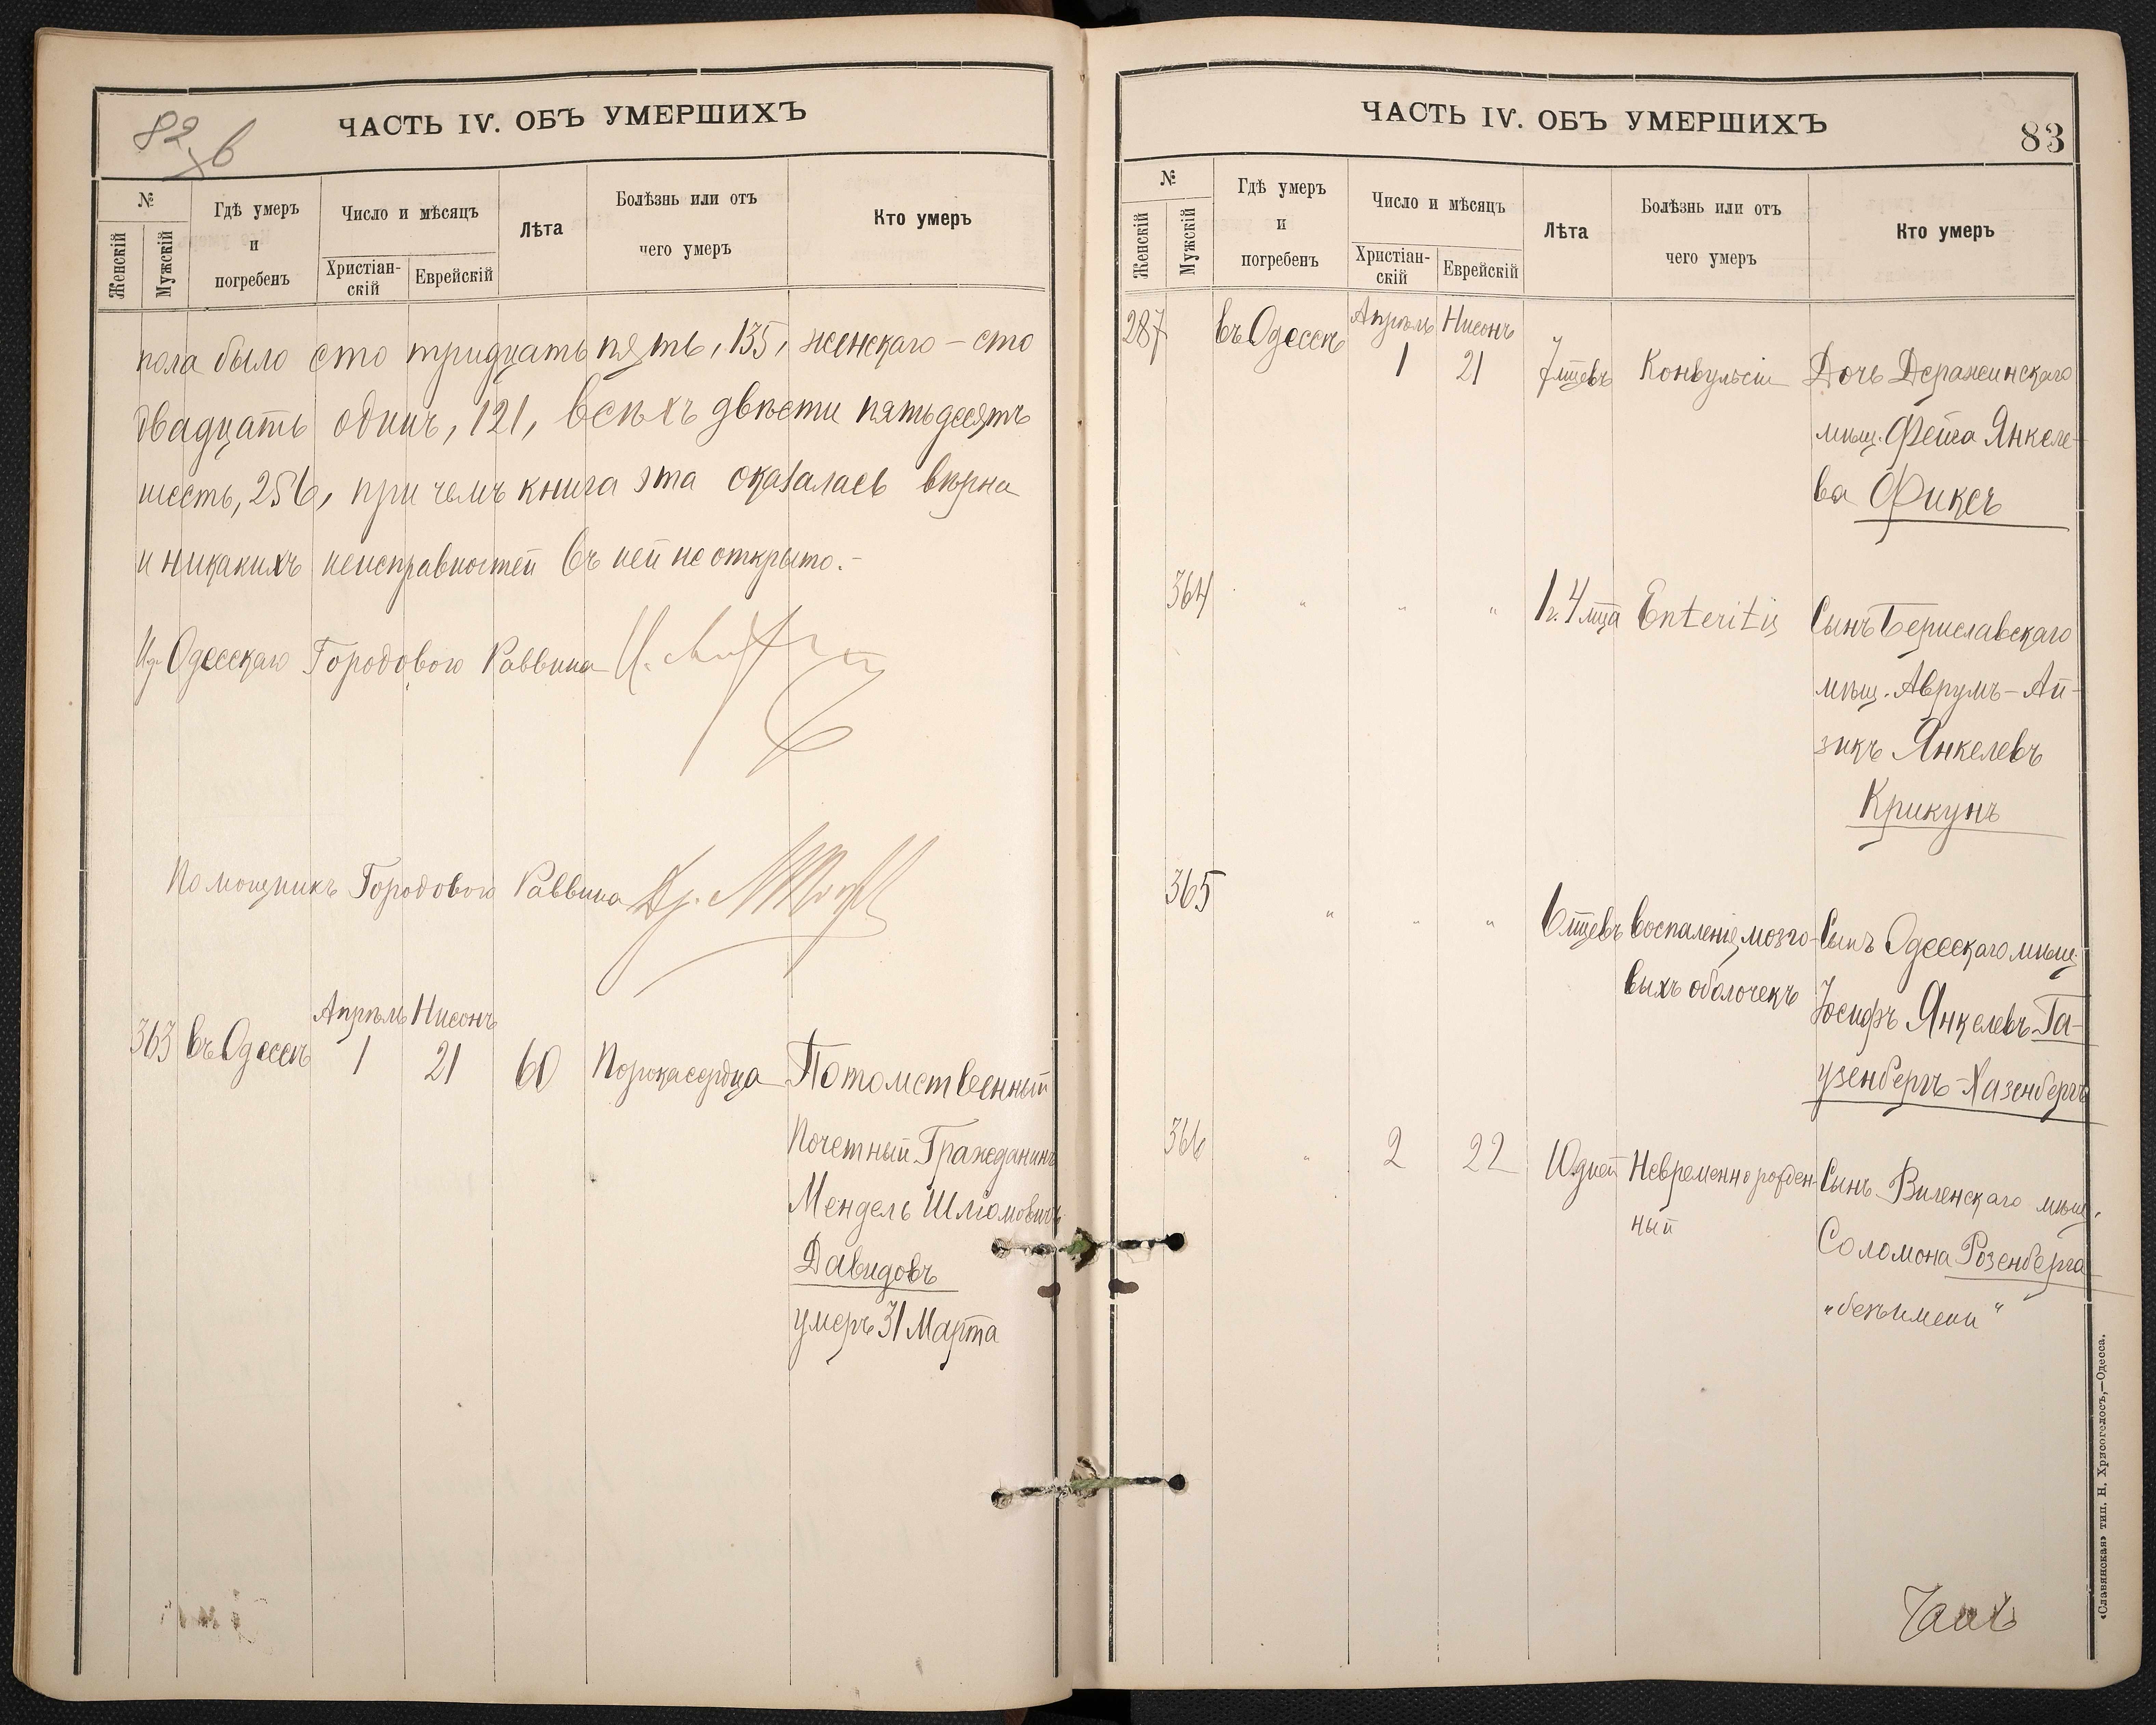 82 в
ЧАСТЬ IV. ОБЪ УМЕРШИХЪ
№
Женскій
Мужскій
Гдѣ умеръ
и
погребенъ
Число и мѣсяцъ
Христіан-
скій
Еврейскій
Лѣта
Болѣзнь или отъ
чего умеръ
Кто умеръ
пола было сто тридцать пять, 135, женскаго – сто
двадцать одинъ, 121, всѣхъ двѣсти пятьдесятъ
шесть, 256, при чемъ книга эта оказалась вѣрна
и никакихъ неисправностей въ ней не открыто.–
И.д. Одесскаго Городового Раввина
Помощникъ Городового Раввина Др.
Апрѣль Нисонъ
363 въ Одессѣ 1 21 60 Порока сердца Потомственный
Почетный Гражданинъ
Мендель Шліомовичъ
Давидовъ
умеръ 31 Марта
ЧАСТЬ IV. ОБЪ УМЕРШИХЪ
83
№
Женскій
Мужскій
Гдѣ умеръ
и
погребенъ
Число и мѣсяцъ
Христіан-
скій
Еврейскій
Лѣта
Болѣзнь или отъ
чего умеръ
Кто умеръ
Апрѣль Нисонъ
287 въ Одессѣ 1 21 7 мцевъ Конвульсіи Дочь Деражинскаго
мѣщ. Фейга Янкеле-
ва Фиксъ
364 " " " 1 г. 4 мца Enteritis Сынъ Бериславскаго
мѣщ. Аврумъ–Ай-
зикъ Янкелевъ
Крикунъ
365 " " " 6 мцевъ Воспаленіе мозго- Сынъ Одесскаго мѣщ
выхъ оболочекъ Іосифъ Янкелевъ Га-
узенбергъ-Хазенбергъ
366 " 2 22 10 дней Невременно рожден- Сынъ Виленскаго мѣщ.
ный Соломона Розенберга
„безъ имени“
«Славянская» тип. Н. Хрисогелосъ,—Одесса.